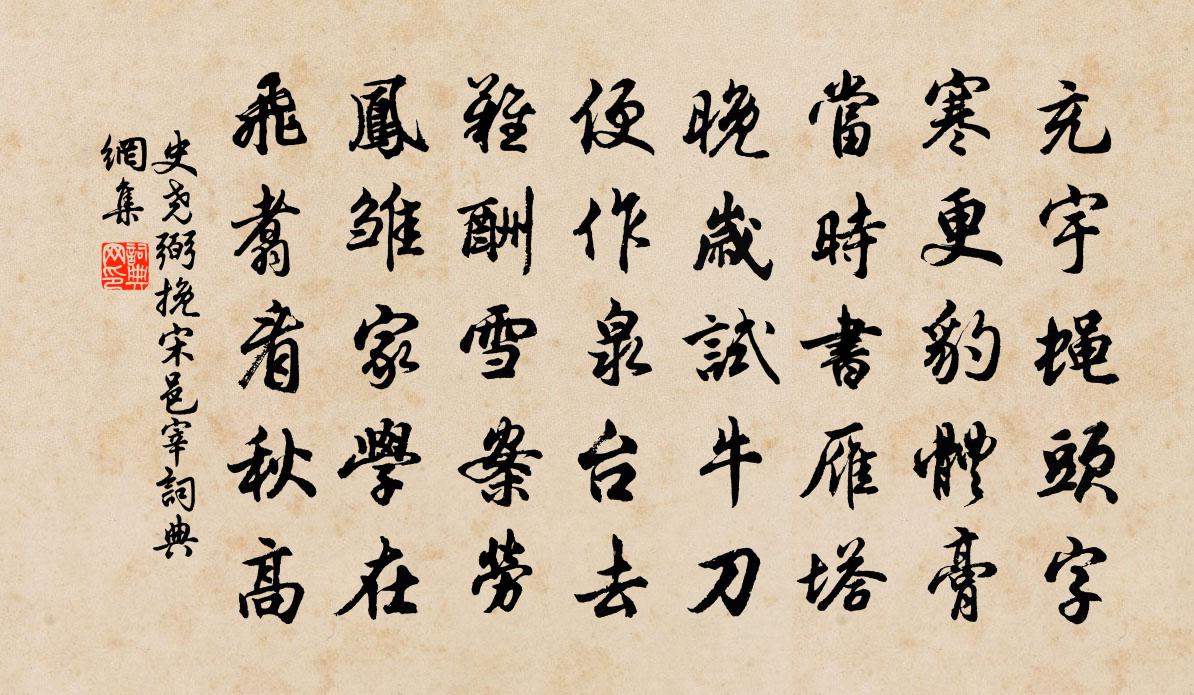 充宇蝇頭字
寒更豹體膏
當時書雁塔
晚歲試牛刀
便作泉台去
難酬雪案勞
鳳雏家學在
飛翥看秋高
史尧弼挽宋邑宰詞典
網集
詞典
网印